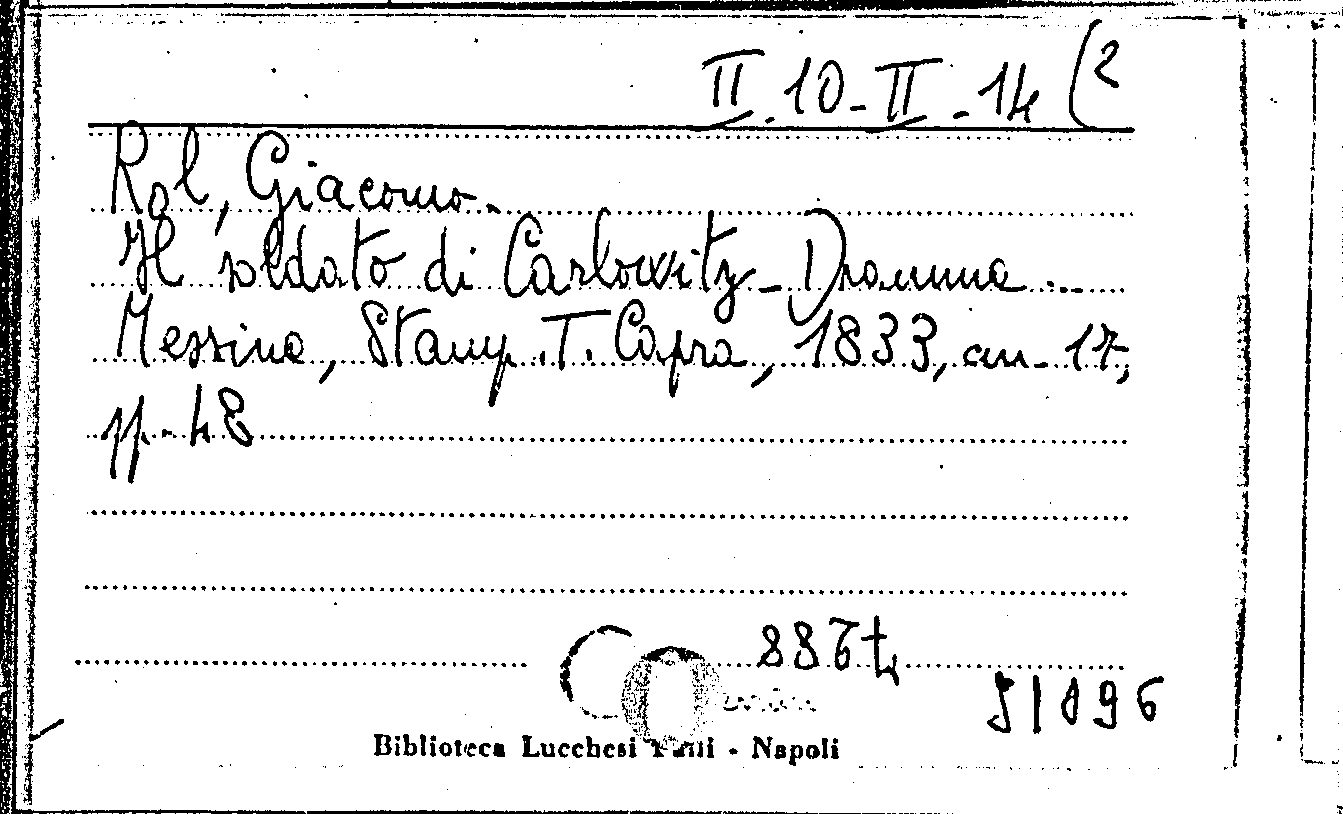 II.10-II-14(2
Rol, Giacomo.
Il soldato di Carlowitz - Dramma ...
Messina, Stamp. T. Capra, 1833, an-17,
pp. 48
51896
Biblioteca Lucchesi Palli - Napoli